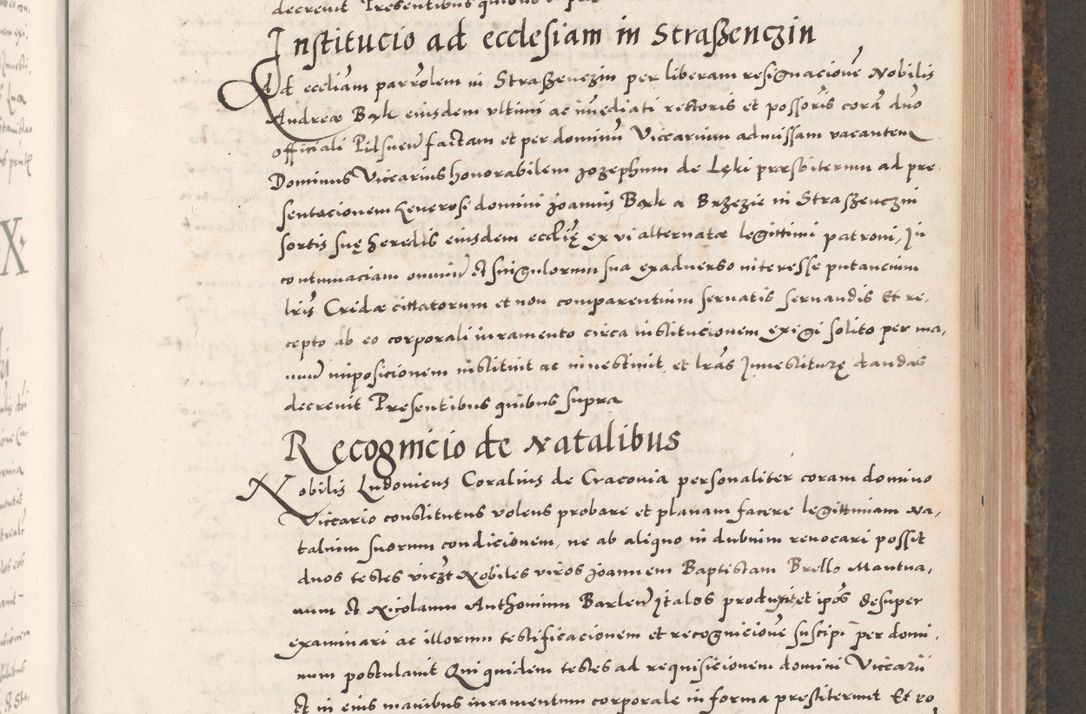 decrevit Presentibus quibus supra
Institucio ad ecclesiam in Straßenczin
Ad eccliam parrolem in Straßenczin per liberam resignacione Nobilis
Andreæ Bąk eiusdem ultimi ac imediati rectoris et possoris cora dno
officiali Pilsnen factam et per dominu Viccarium admissam vacantem
Dominus Viccarius honorabilem Jozephum de Lęki præsbiterum ad pre
sentacionem Generosi domini Joannis Bąk a Brzezie in Straßenczin
sortis suę heredis eiusdem ecclię ex vi alternatæ legittimi patroni, In
contumaciam omniu et singulorum sua exadverso interesse putancium
lris Cridæ cittatorum et non comparentium servatis servandis Et re,
cepto ab eo corporali iuramento circa institucionem exigi solito per ma,
nuu imposicionem instituit ac investivit, et lras Investiturę dandas
decrevit Presentibus quibus supra
Recognicio de Natalibus
Nobilis Ludovicus Coralius de Cracovia personaliter coram domino
Viccario constitutus volens probare et planam facere legittimam Na,
talium suorum condicionem, ne ab aliquo in dubium revocari possit
duos testes viezt Nobiles viros Joannem Baptistam Brello Mantua,
num et Nicolaum Anthonium Barlen Italos produxit et ipos desuper
examinari ac illorum testificacionem et recognicione suscipi per domi,
num postulavit Qui quidem testes ad requisicionem domini Viccarii
et in eius manibus iuramentum corporale in forma prestiterunt Et ro,